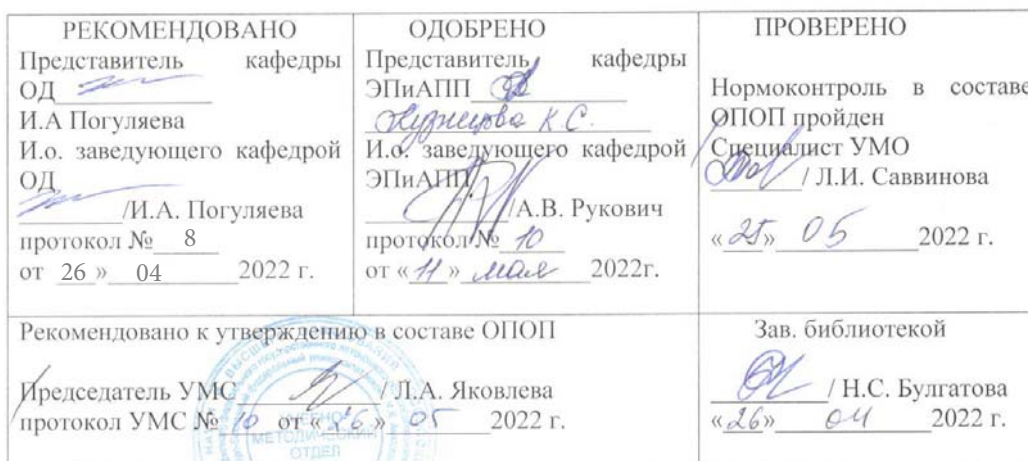 РЕКОМЕНДОВАНО
Представитель кафедры
ОД
И.А Погуляева
И.о. заведующего кафедрой
ОД
/И.А. Погуляева
протокол № 8
от 26 » 04 2022 г.
ОДОБРЕНО
Представитель кафедры
ЭПиАПП
Кузнецова К.С.
И.о. заведующего кафедрой
ЭПиАПП
/А.В. Рукович
протокол № 10
от « 11 » мая 2022г.
ПРОВЕРЕНО
Нормоконтроль в составе
ОПОП пройден
Специалист УМО
/ Л.И. Саввинова
« 25 » 05 2022 г.
Рекомендовано к утверждению в составе ОПОП
Председатель УМС / Л.А. Яковлева
протокол УМС № 10 от « 26 » 05 2022 г.
УЧЕБНО
МЕТОДИЧЕСКИЙ
ОТДЕЛ
Зав. библиотекой
/ Н.С. Булгатова
« 26 » 04 2022 г.